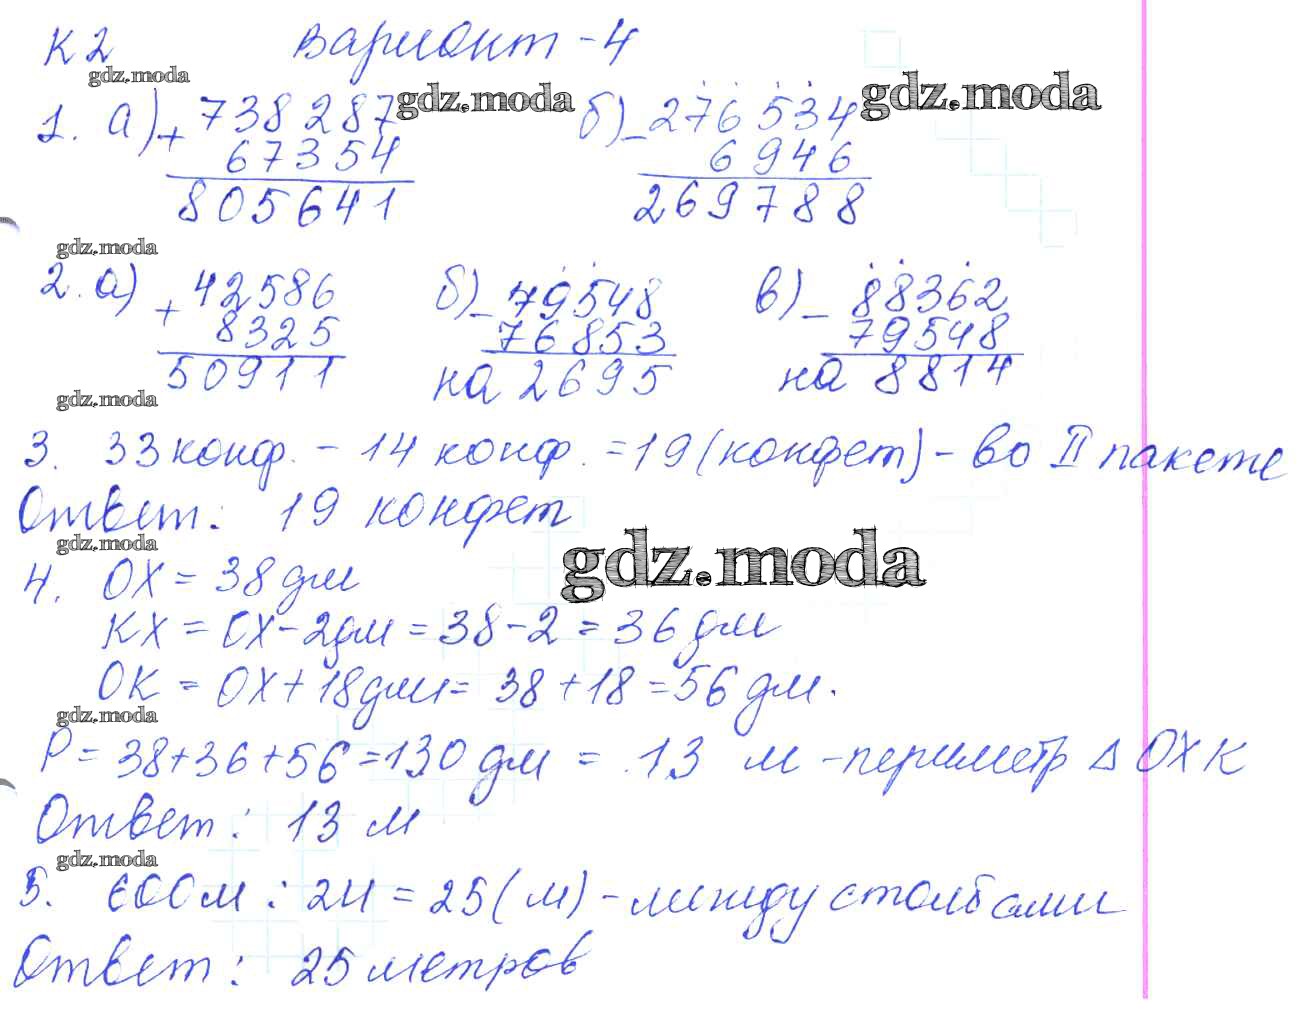 К2 Вариант-4
gdz.moda
1. а) + 738 287 gdz.moda б) - 276 534 gdz.moda
67354 6946
805641 269788
gdz.moda
2. а) + 42586 б) - 79548 в) - 88362
8325 76853 79548
50911 на 2695 на 8814
gdz.moda
3. 33 конф. - 14 конф. = 19 (конфет) - во II пакете
Ответ: 19 конфет
gdz.moda gdz.moda
4. OX = 38 дм
KX = OX - 2дм = 38 - 2 = 36 дм
OK = OX + 18дм = 38 + 18 = 56 дм.
gdz.moda
P = 38 + 36 + 56 = 130 дм = 13 м - периметр Δ OXK
Ответ: 13 м
gdz.moda
5. 600м : 24 = 25 (м) - между столбами
Ответ: 25 метров